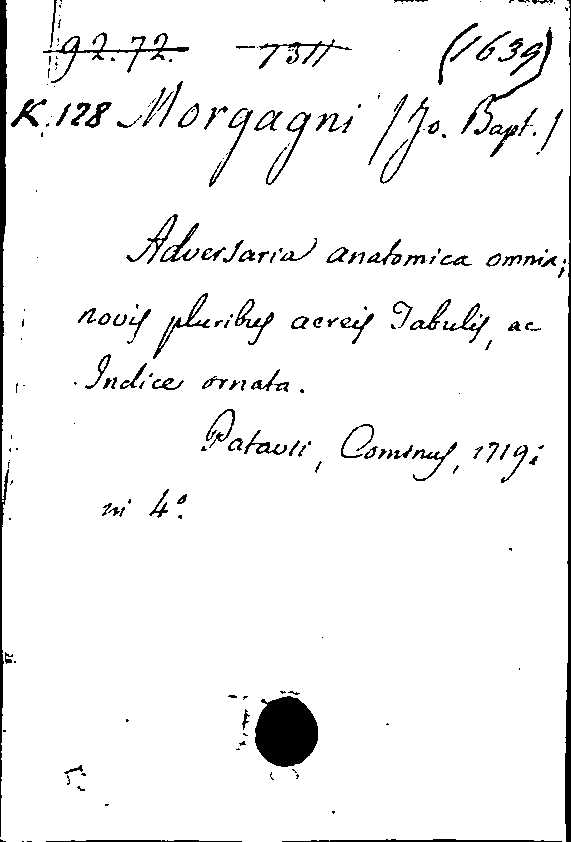 92.72. 7311 (1639)
K.128 Morgagni (Jo. Bapt.)
Adversaria anatomica omnia;
novis pluribus aereis Tabulis, ac
Indice ornata.
Patavii, Cominus, 1719;
in 4°.